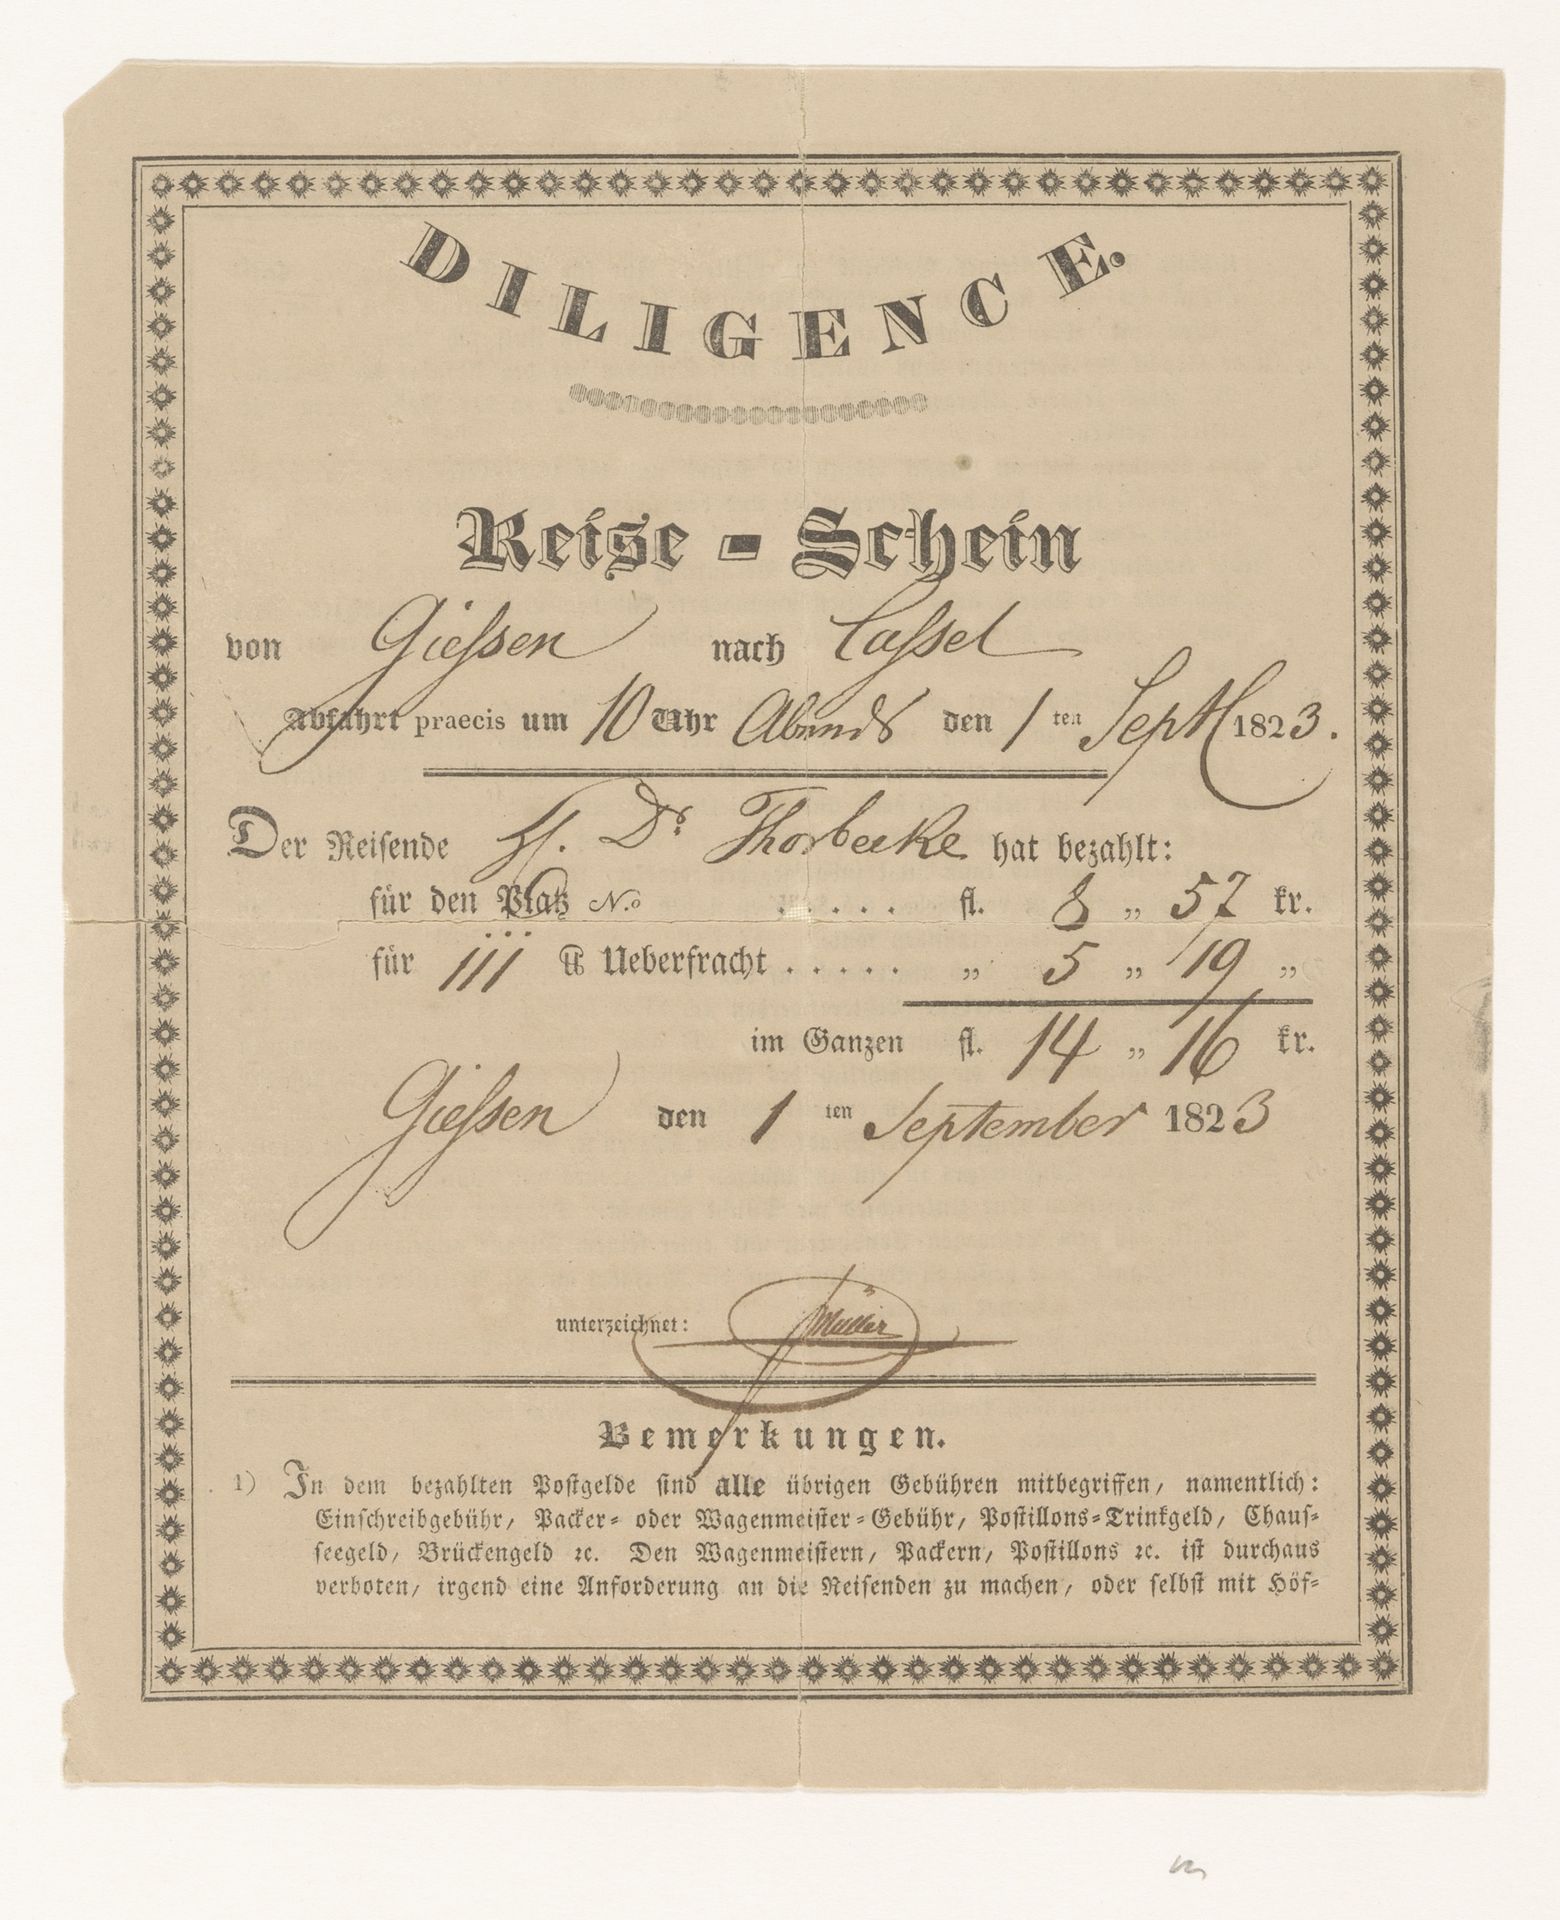 DILIGENCE.
Reise-Schein
von Giessen nach Cassel
Abfahrt praecis um 10 Uhr Abends den 1ten Septbr 1823.
Der Reisende H. Dr. Thorbecke hat bezahlt:
für den Platz No . . . . . fl. 8 „ 57 kr.
für 111 ℔ Ueberfracht . . . . . „ 5 „ 19 „
im Ganzen fl. 14 „ 16 kr.
Giessen den 1ten September 1823
unterzeichnet: Müller
Bemerkungen.
1) In dem bezahlten Postgelde sind alle übrigen Gebühren mitbegriffen, namentlich:
Einschreibgebühr, Packer- oder Wagenmeister-Gebühr, Postillons-Trinkgeld, Chaus-
seegeld, Brückengeld ꝛc. Den Wagenmeistern, Packern, Postillons ꝛc. ist durchaus
verboten, irgend eine Anforderung an die Reisenden zu machen, oder selbst mit Höf-